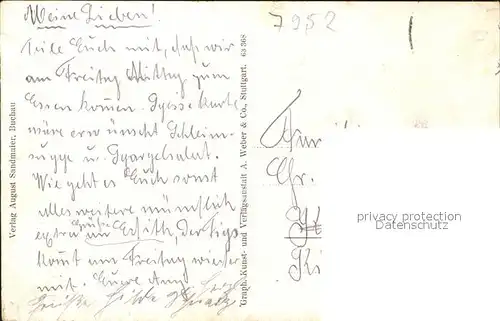 Meine Lieben!
7952
Teile Euch mit, daß wir
am Freitag Mittag zum
Essen kommen. Speisekarte
wäre erwünscht Schleim-
suppe u. Spargelsalat.
Wie geht es Euch sonst
alles weitere mündlich
extra Grüße an Edith, der
kommt am Freitag wieder
mit. Euere
Grüße Hilde
Verlag August Sandmaier, Buchau
Graph. Kunst- und Verlagsanstalt A. Weber & Co., Stuttgart. 63 368
An
privacy protection
Datenschutz